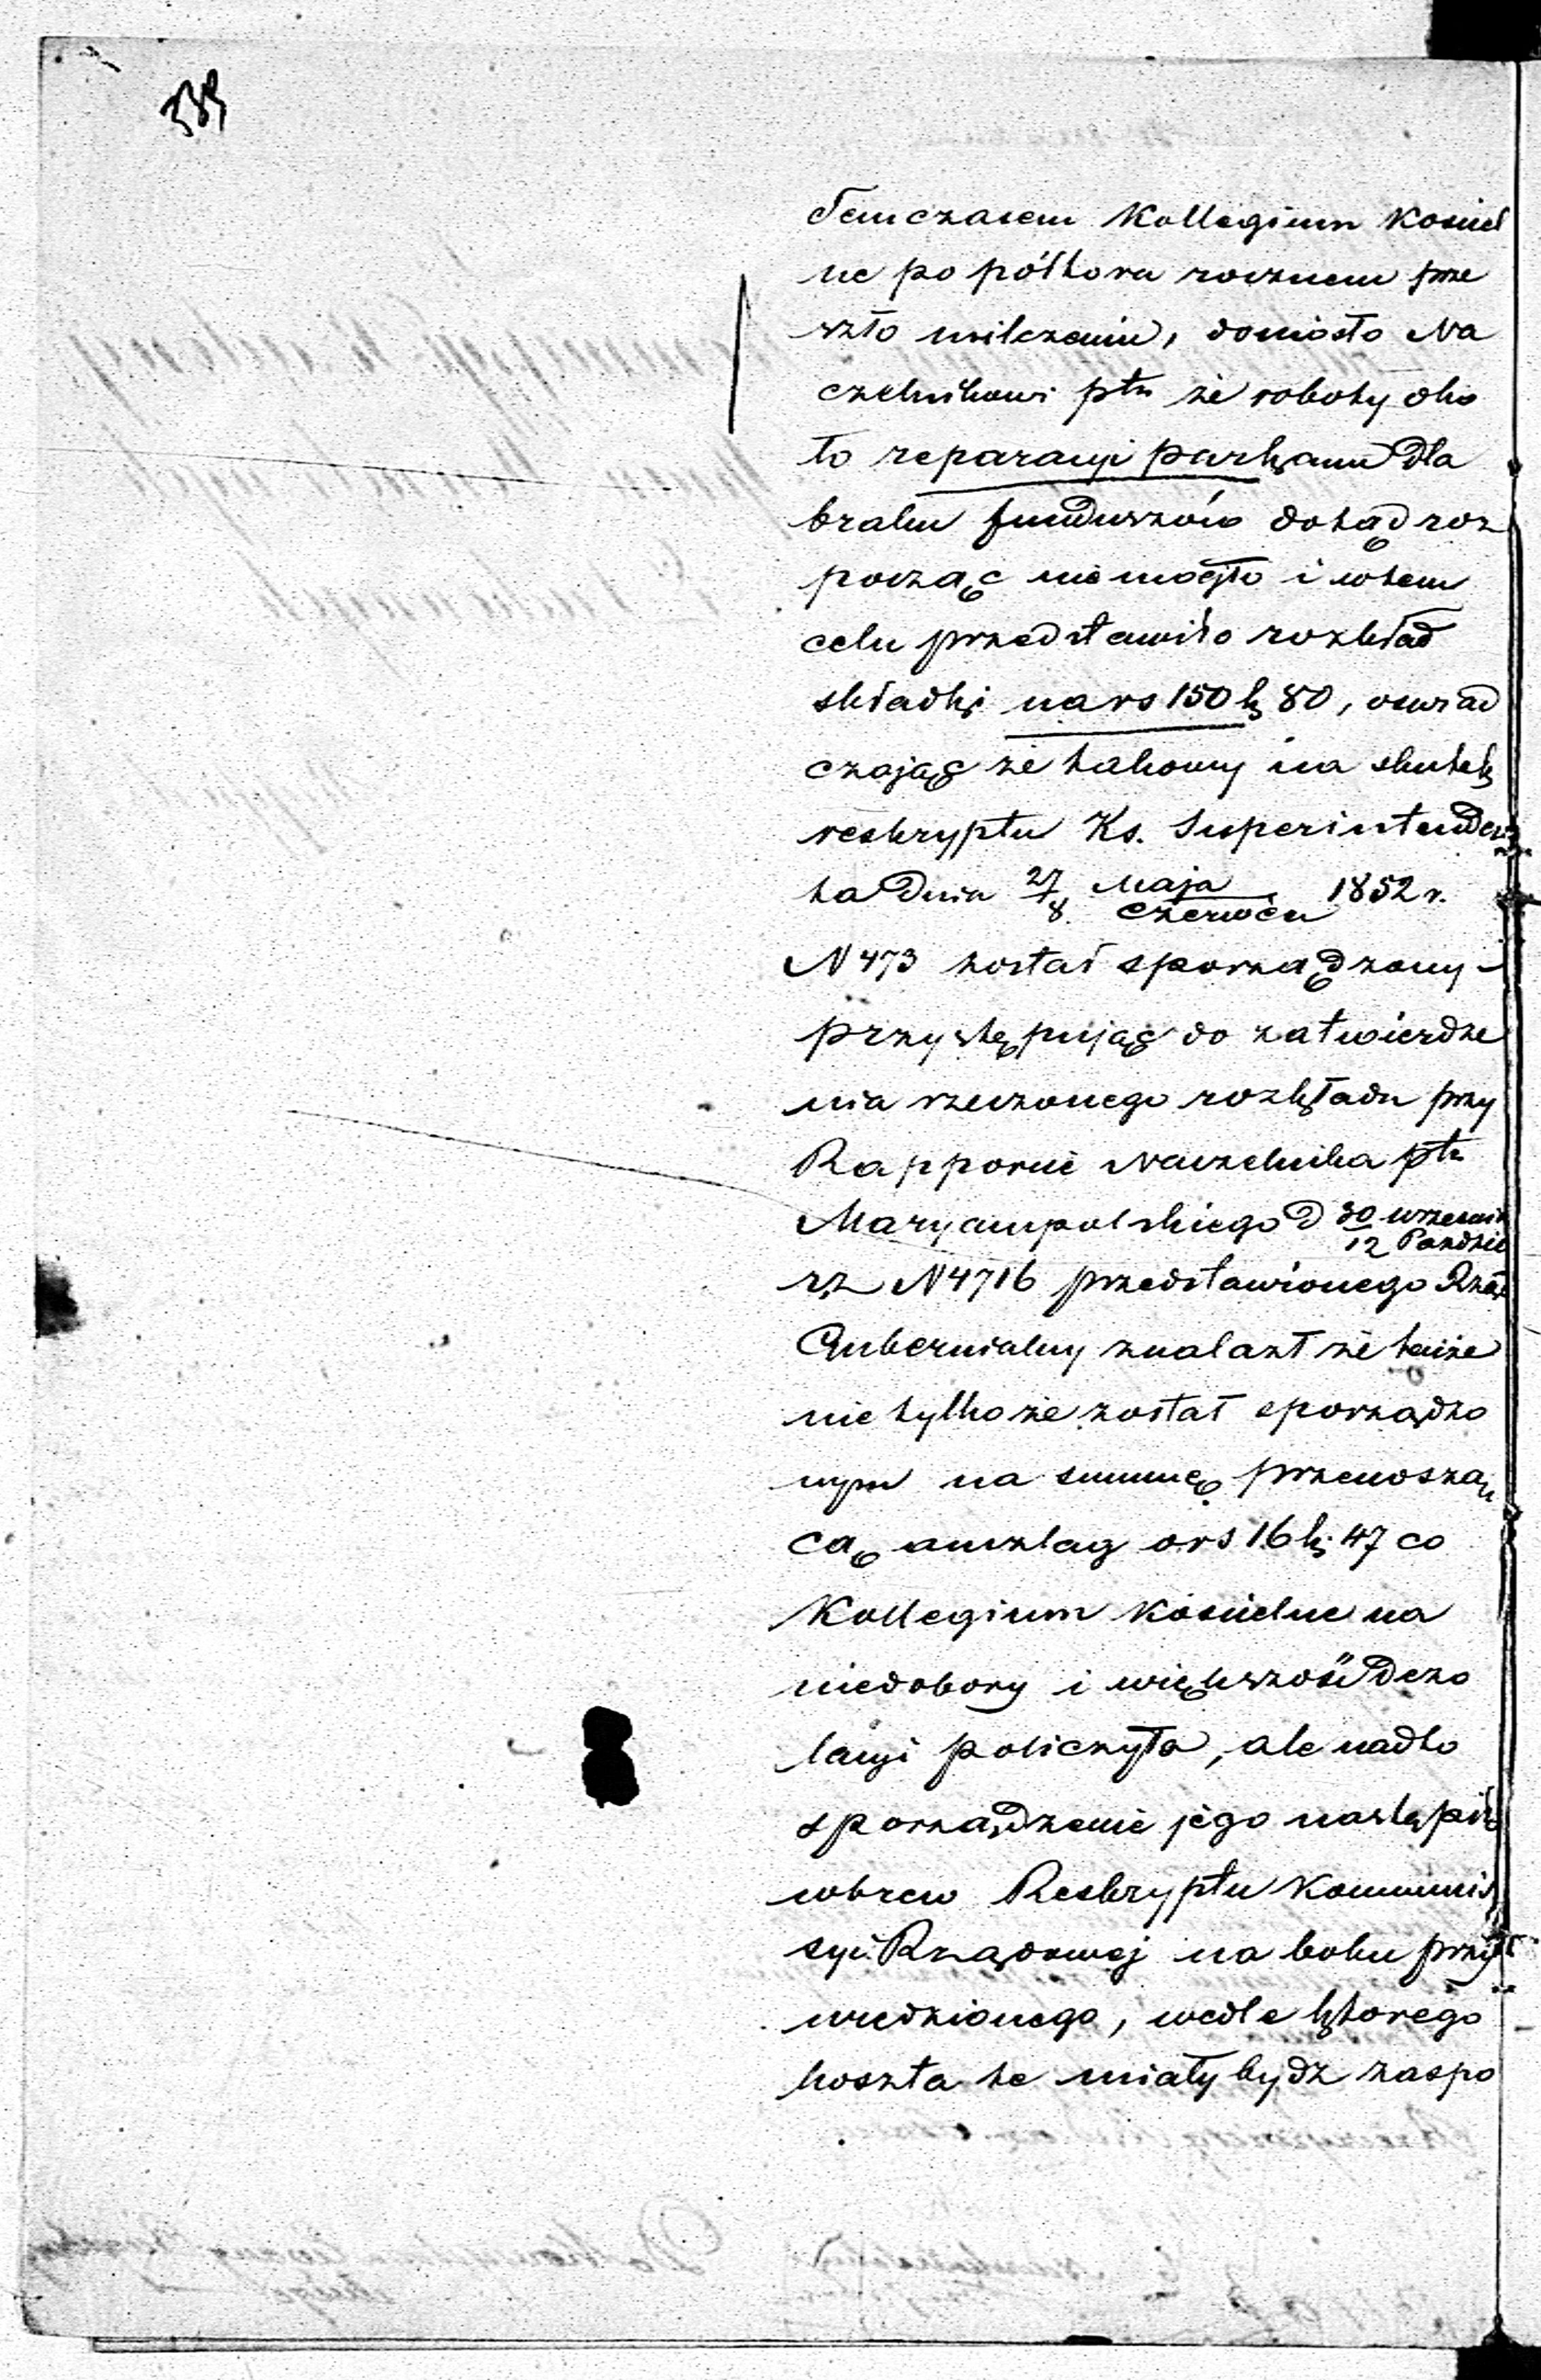 Temczasem Kollegium Kosciel
ne po półtora rocznem prze
szło milczeniu, doniosło Na
czelnikowi ptu że roboty oko
ło reparacyi parkanu dla
braku funduszów dotąd roz
począc niemogło i wtem
celu przedstawiło rozkład
składki na rs 150 k 80, oswiad
czając że takowy na skutek
reskryptu Ks. Superintenden
ta dnia 27 Maja / 8 Czerwca 1852 r.
N 473 został sporządzony -
przystępując do zatwierdze
nia rzeczonego rozkładu przy
Rapporcie Naczelnika ptu
Maryampolskiego d 30 Wrzesnia / 12 Pazdzie
rz N 4716 przedstawionego Rząd
Gubernialny znalazł że tenże
nie tylko że został sporządzo
nym na summę przenoszą
cą anszlag o rs 16 k. 47 co
Kollegium Koscielne na
niedobory i większość dezo
lacyi policzyło, ale nadto
sporządzenie jego nastąpiło
wbrew Reskryptu Kommmis
syi Rządowej na boku przy
wiedzionego, wedle którego
koszta te miały bydz zaspo